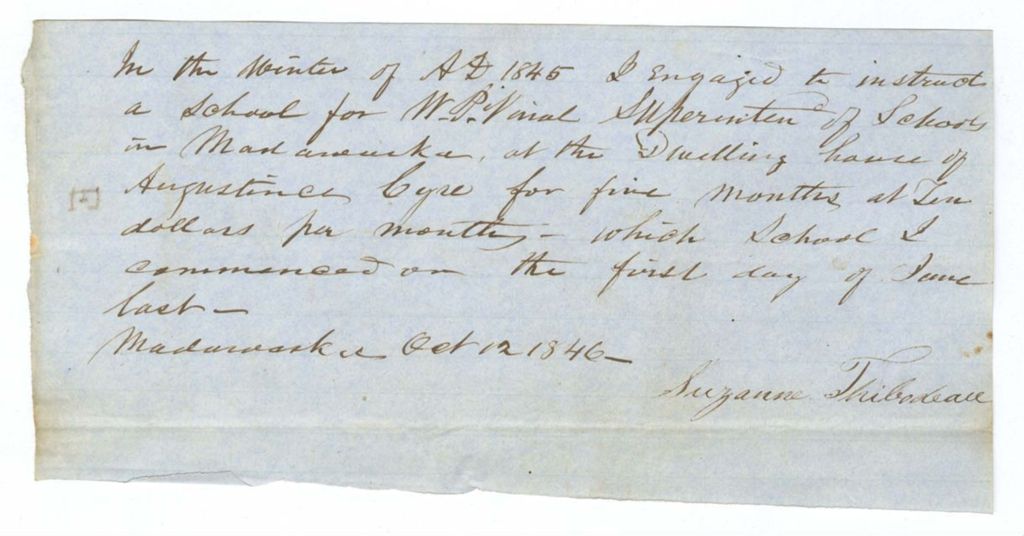 In the Winter of AD 1845 I Engaged to instruct
a School for W. P. Vinal Superintend of Schools
in Madawaska, at the Dwelling house of
Augustince Cyre for five months at Ten
dollars per months, - which School I
commenced on the first day of June
last -
Madawaska Oct 12 1846 -
Suzanne Thibodeau
[F]